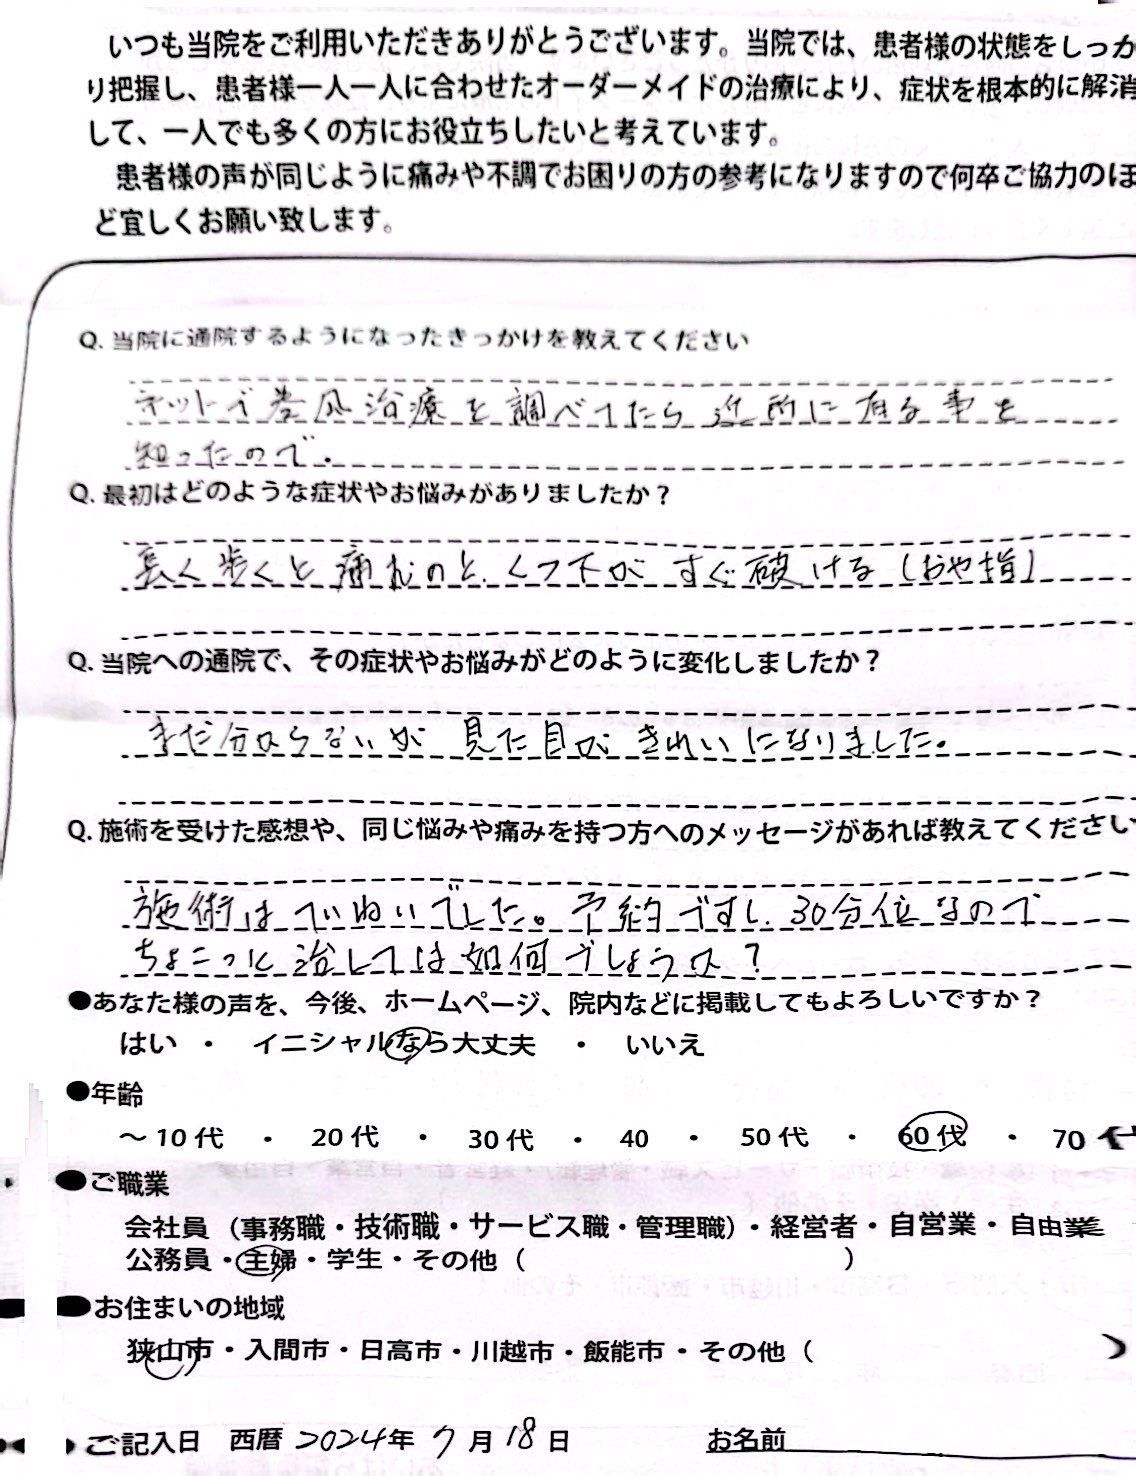 いつも当院をご利用いただきありがとうございます。当院では、患者様の状態をしっか
り把握し、患者様一人一人に合わせたオーダーメイドの治療により、症状を根本的に解消
して、一人でも多くの方にお役立ちしたいと考えています。
患者様の声が同じように痛みや不調でお困りの方の参考になりますので何卒ご協力のほ
ど宜しくお願い致します。
Q. 当院に通院するようになったきっかけを教えてください
ネットで巻爪治療を調べてたら近所に有る事を
知ったので.
Q. 最初はどのような症状やお悩みがありましたか？
長く歩くと痛むのと、くつ下がすぐ破ける(おや指)
Q. 当院への通院で、その症状やお悩みがどのように変化しましたか？
まだ分からないが 見た目がきれいになりました。
Q. 施術を受けた感想や、同じ悩みや痛みを持つ方へのメッセージがあれば教えてください
施術はていねいでした。予約ですし、30分位なので
ちょこっと治しては如何でしょうか？
●あなた様の声を、今後、ホームページ、院内などに掲載してもよろしいですか？
はい ・ イニシャルなら大丈夫 ・ いいえ
●年齢
～10代 ・ 20代 ・ 30代 ・ 40 ・ 50代 ・ 60代 ・ 70代
●ご職業
会社員（事務職・技術職・サービス職・管理職）・経営者・自営業・自由業
公務員・主婦・学生・その他（ ）
●お住まいの地域
狭山市・入間市・日高市・川越市・飯能市・その他（ ）
ご記入日 西暦 2024年 7月 18日 お名前